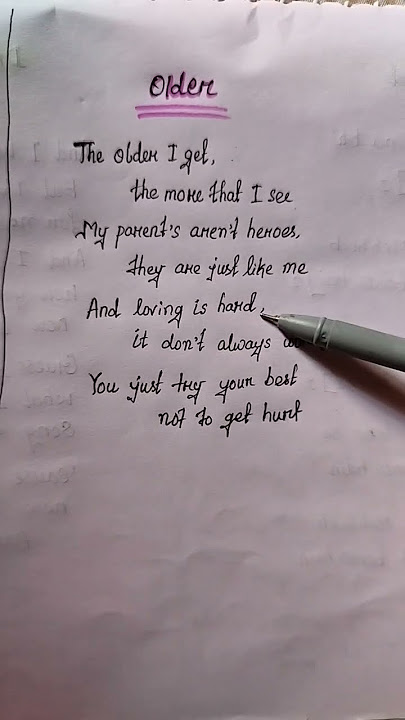 Older
The older I get,
the more that I see
My parent's aren't heroes,
they are just like me
And loving is hard,
it don't always
You just try your best
not to get hurt